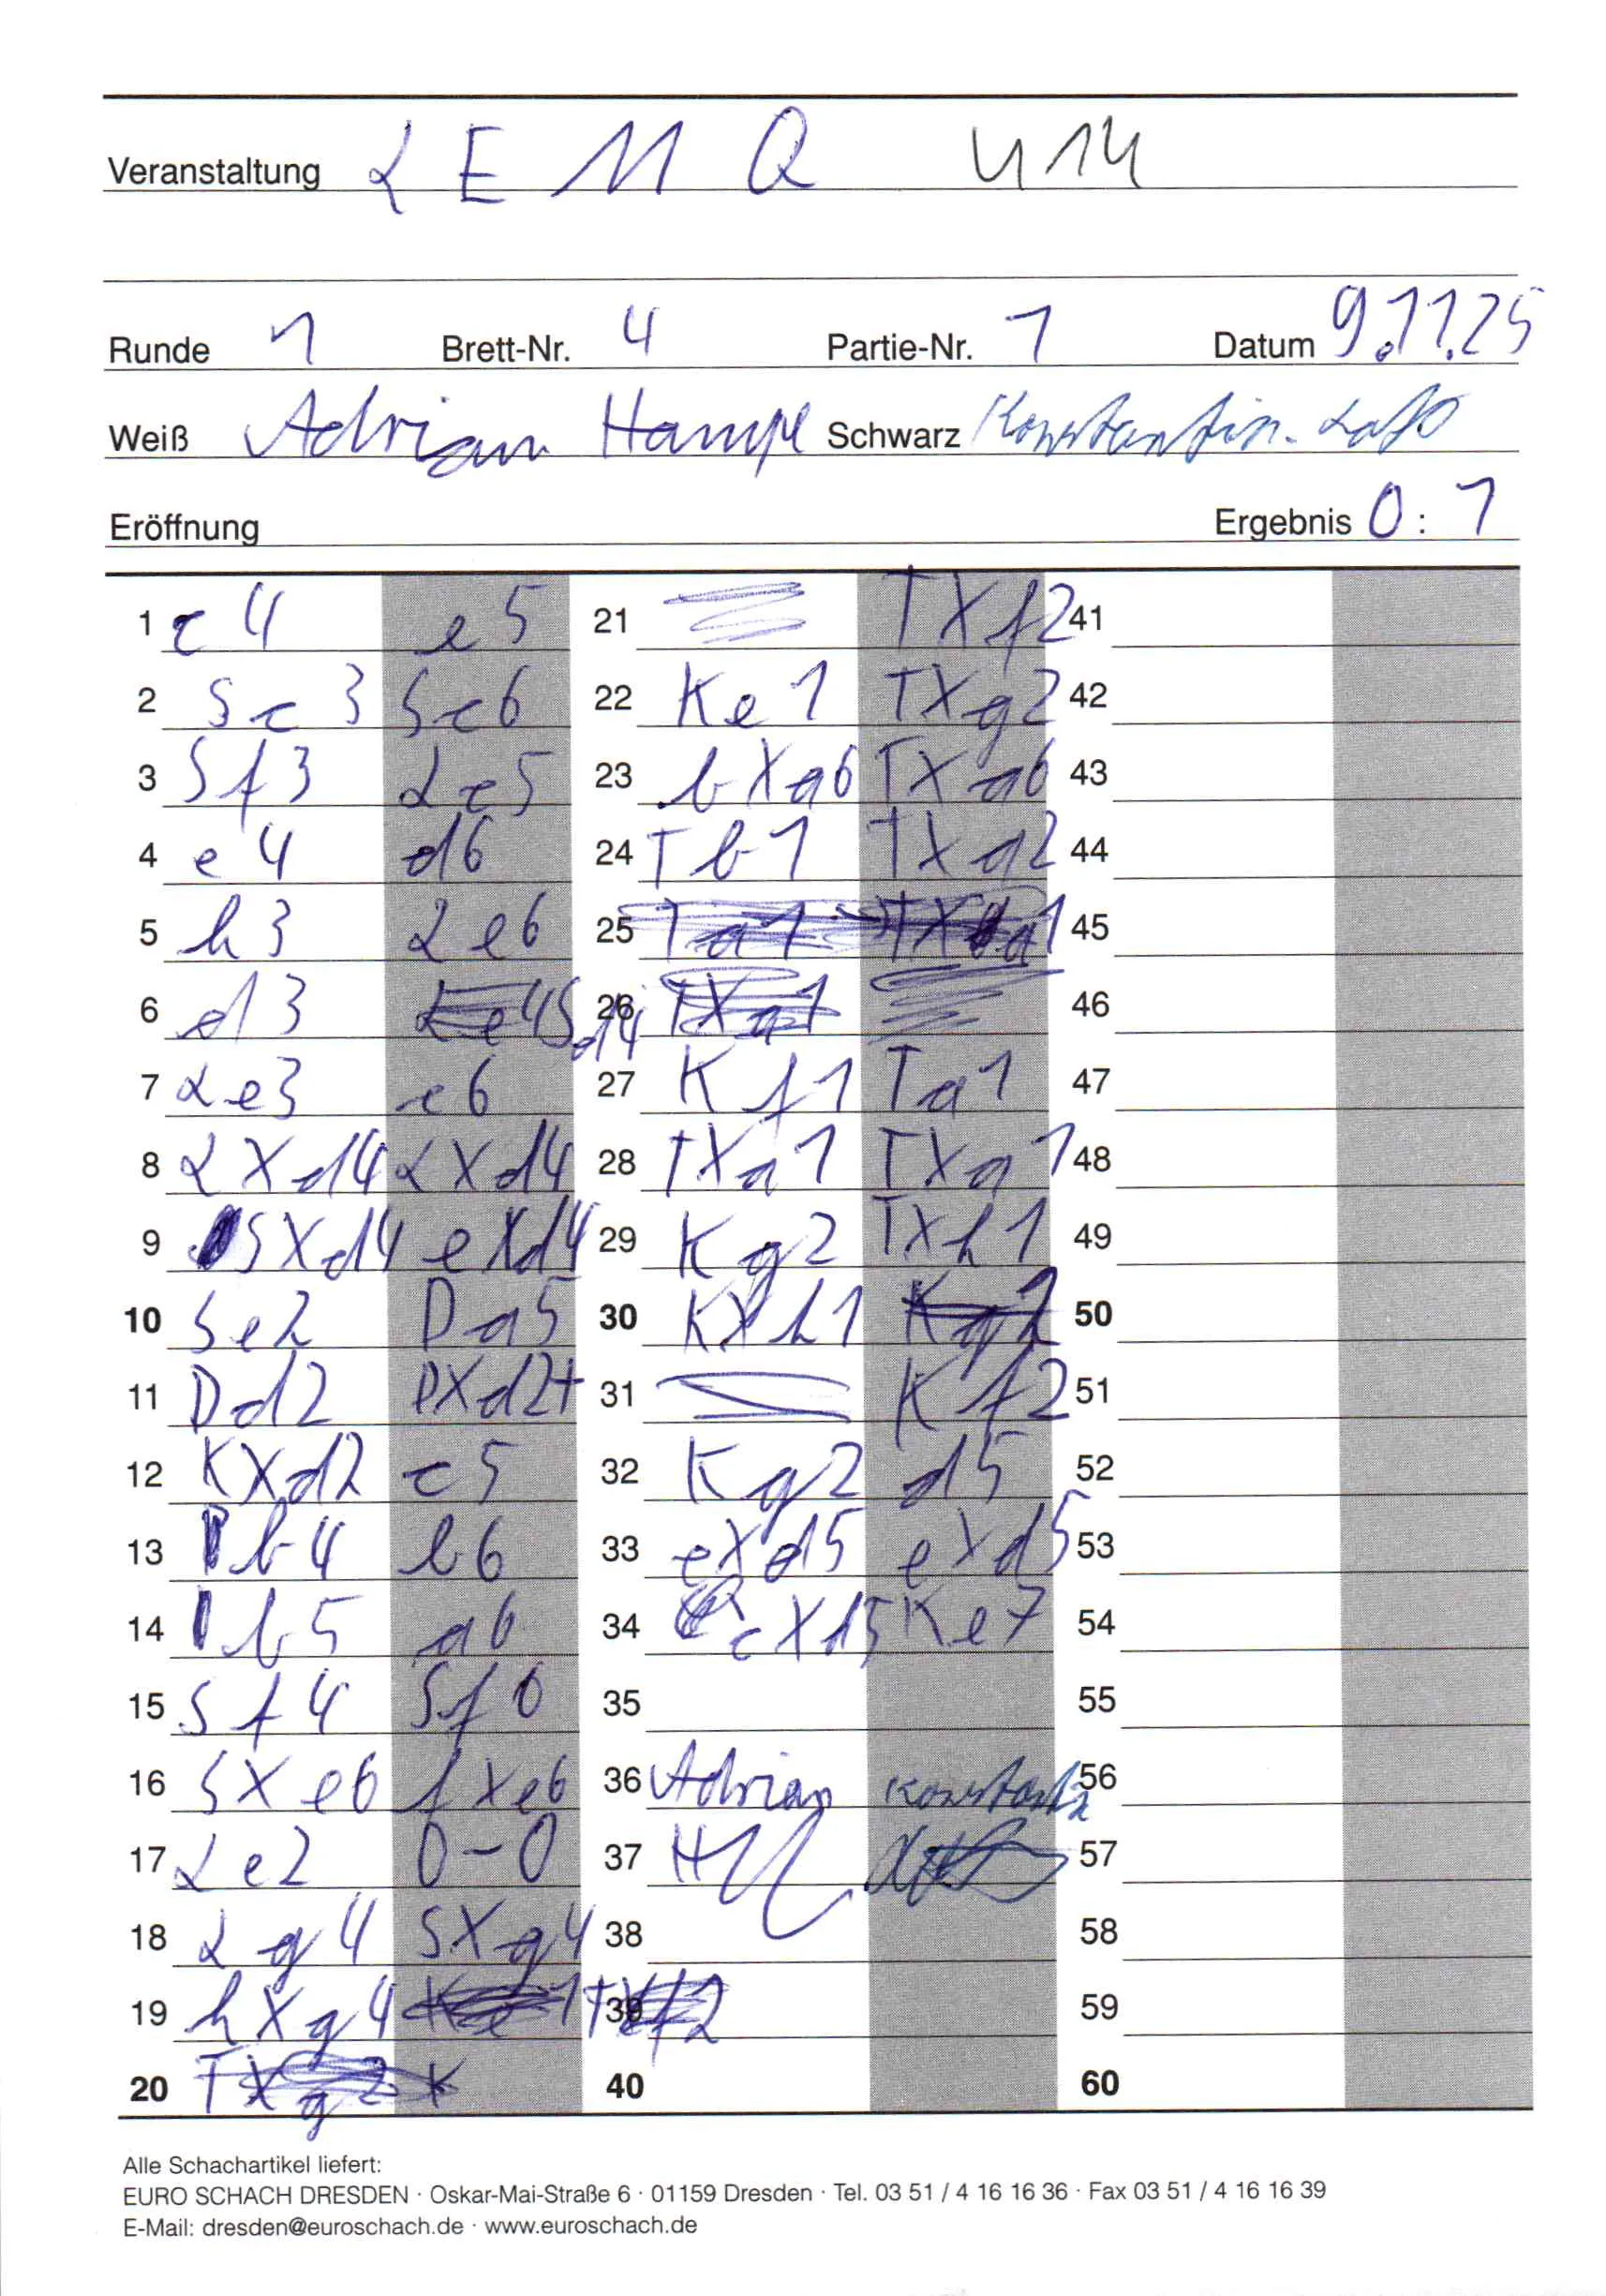 Veranstaltung LEM Q U14
Runde 1 Brett-Nr. 4 Partie-Nr. 1 Datum 9.11.25
Weiß Adrian Hampl Schwarz Konstantin
Eröffnung Ergebnis 0 : 1
1 c4 e5
2 Sc3 Sc6
3 Sf3 Lc5
4 e4 d6
5 h3 Le6
6 d3 Sd4
7 Le3 c6
8 LXd4 LXd4
9 SXd4 eXd4
10 Se2 Da5
11 Dd2 DXd2+
12 KXd2 c5
13 b4 b6
14 b5 a6
15 Sf4 Sf6
16 SXe6 fXe6
17 Le2 0-0
18 Lg4 SXg4
19 hXg4
20
21 TXf2
22 Ke1 TXg2
23 bXa6 TXa6
24 Tb1 TXa2
25
26
27 Kf1 Ta1
28 TXa1 TXa1
29 Kg2 TXh1
30 KXh1
31 Kf2
32 Kg2 d5
33 eXd5 eXd5
34 cXd5 Ke7
35
36 Adrian Konstantin
37
38
39
40
41
42
43
44
45
46
47
48
49
50
51
52
53
54
55
56
57
58
59
60
Alle Schachartikel liefert:
EURO SCHACH DRESDEN · Oskar-Mai-Straße 6 · 01159 Dresden · Tel. 03 51 / 4 16 16 36 · Fax 03 51 / 4 16 16 39
E-Mail: dresden@euroschach.de · www.euroschach.de